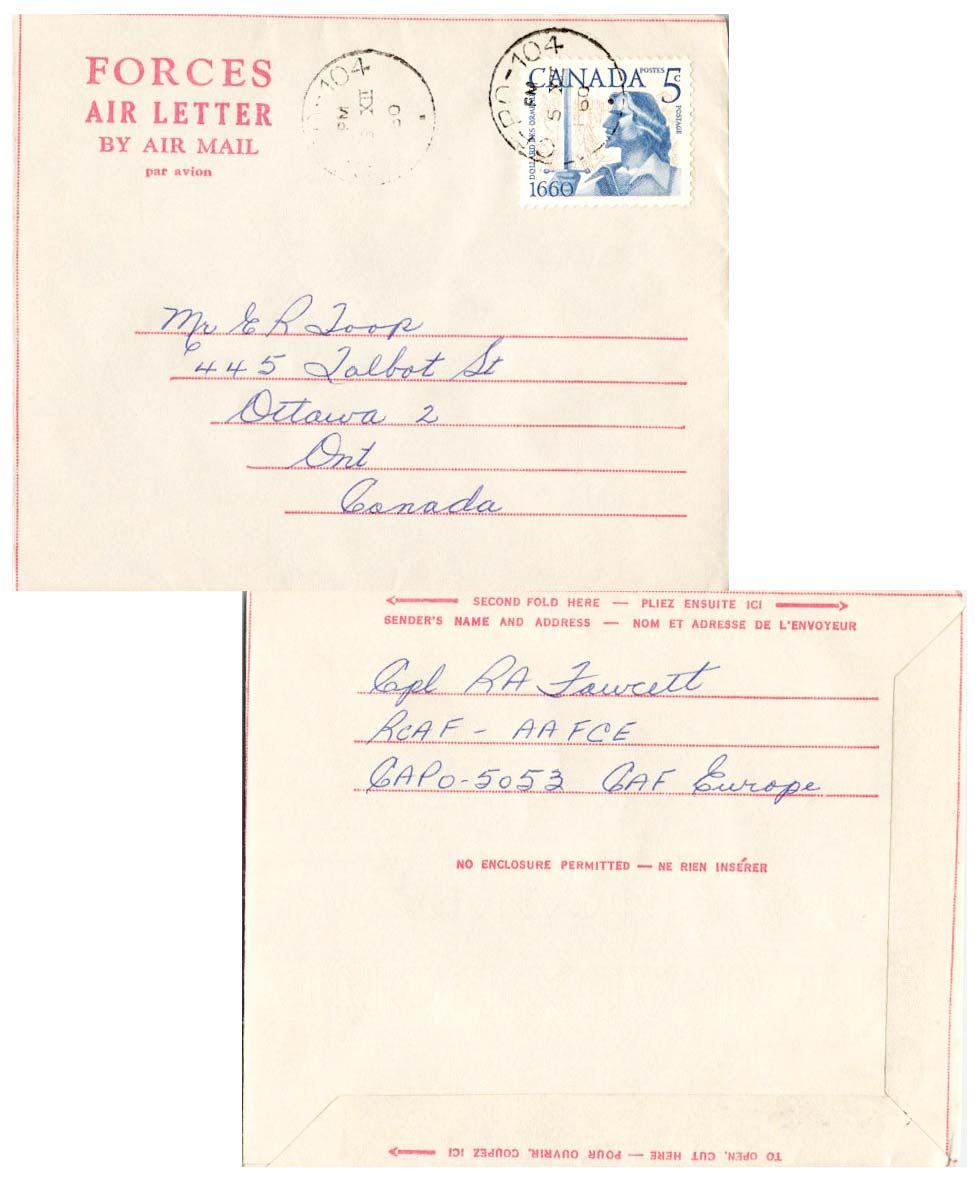 FORCES
AIR LETTER
BY AIR MAIL
par avion
-104
PM
XII
60
CAPO-104
PM
5 XII
60
CANADA POSTES 5c
POSTAGE
DOLLARD DES ORMEAUX
1660
Mr E R Toop
445 Talbot St
Ottawa 2
Ont
Canada
SECOND FOLD HERE — PLIEZ ENSUITE ICI
SENDER'S NAME AND ADDRESS — NOM ET ADRESSE DE L'ENVOYEUR
Cpl RA Fawcett
RCAF - AAFCE
CAPO-5053 CAF Europe
NO ENCLOSURE PERMITTED — NE RIEN INSÉRER
TO OPEN, CUT HERE — POUR OUVRIR, COUPEZ ICI